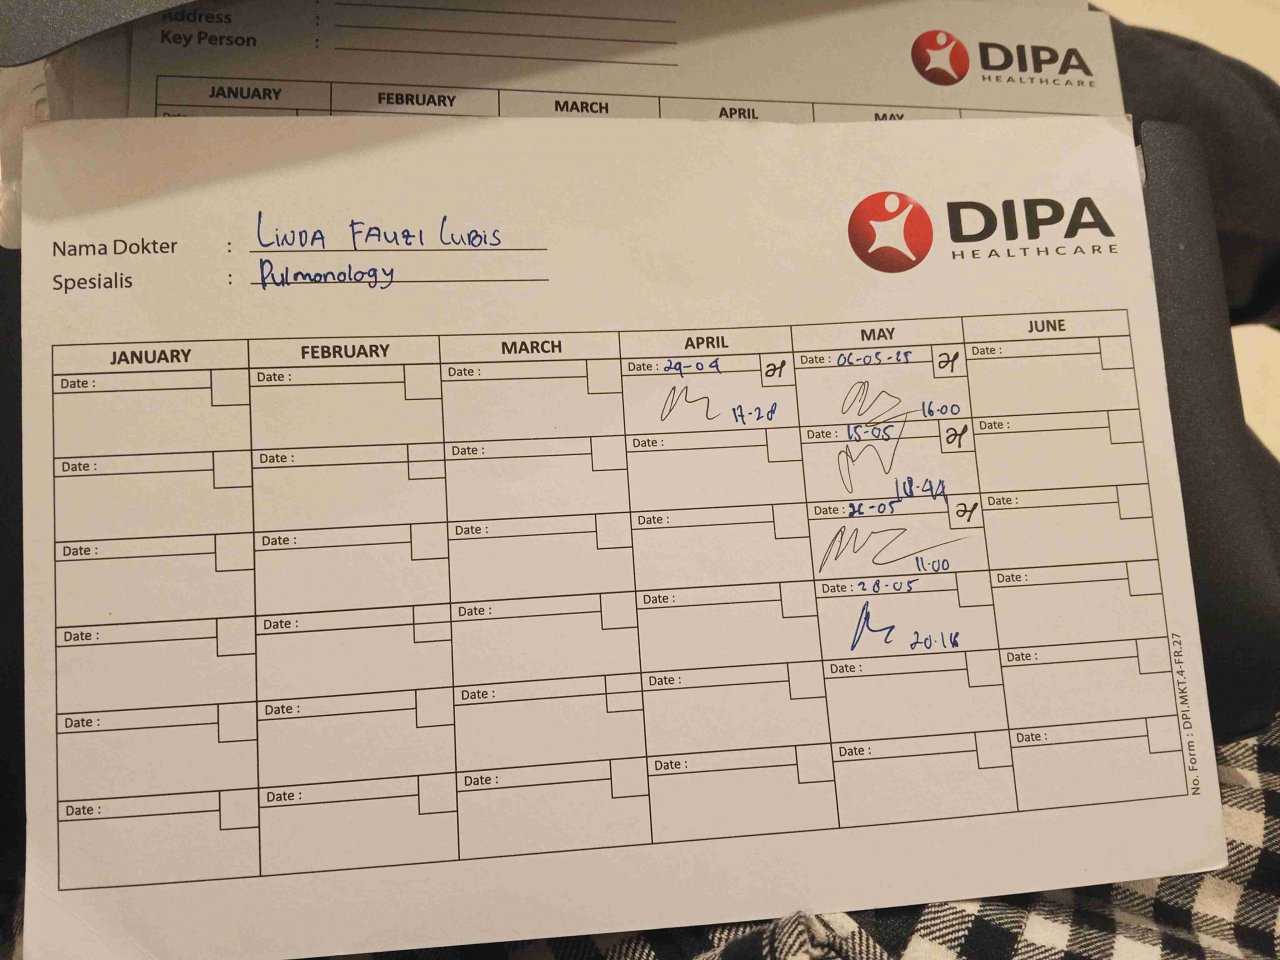 Address :
Key Person :
DIPA
HEALTHCARE
JANUARY FEBRUARY MARCH APRIL MAY
Nama Dokter : LINDA FAUZI LUBIS
Spesialis : Pulmonology
DIPA
HEALTHCARE
JANUARY FEBRUARY MARCH APRIL MAY JUNE
Date : Date : Date : Date : 29-04 Date : 06-05-25 Date :
17-28 16.00
Date : Date : Date : Date : Date : 15-05 Date :
18.44
Date : Date : Date : Date : Date : 26-05 Date :
11.00
Date : Date : Date : Date : Date : 28-05 Date :
Date : Date : Date : Date : Date : Date :
Date : Date : Date : Date : Date : Date :
No. Form : DPI.MKT.4-FR.27